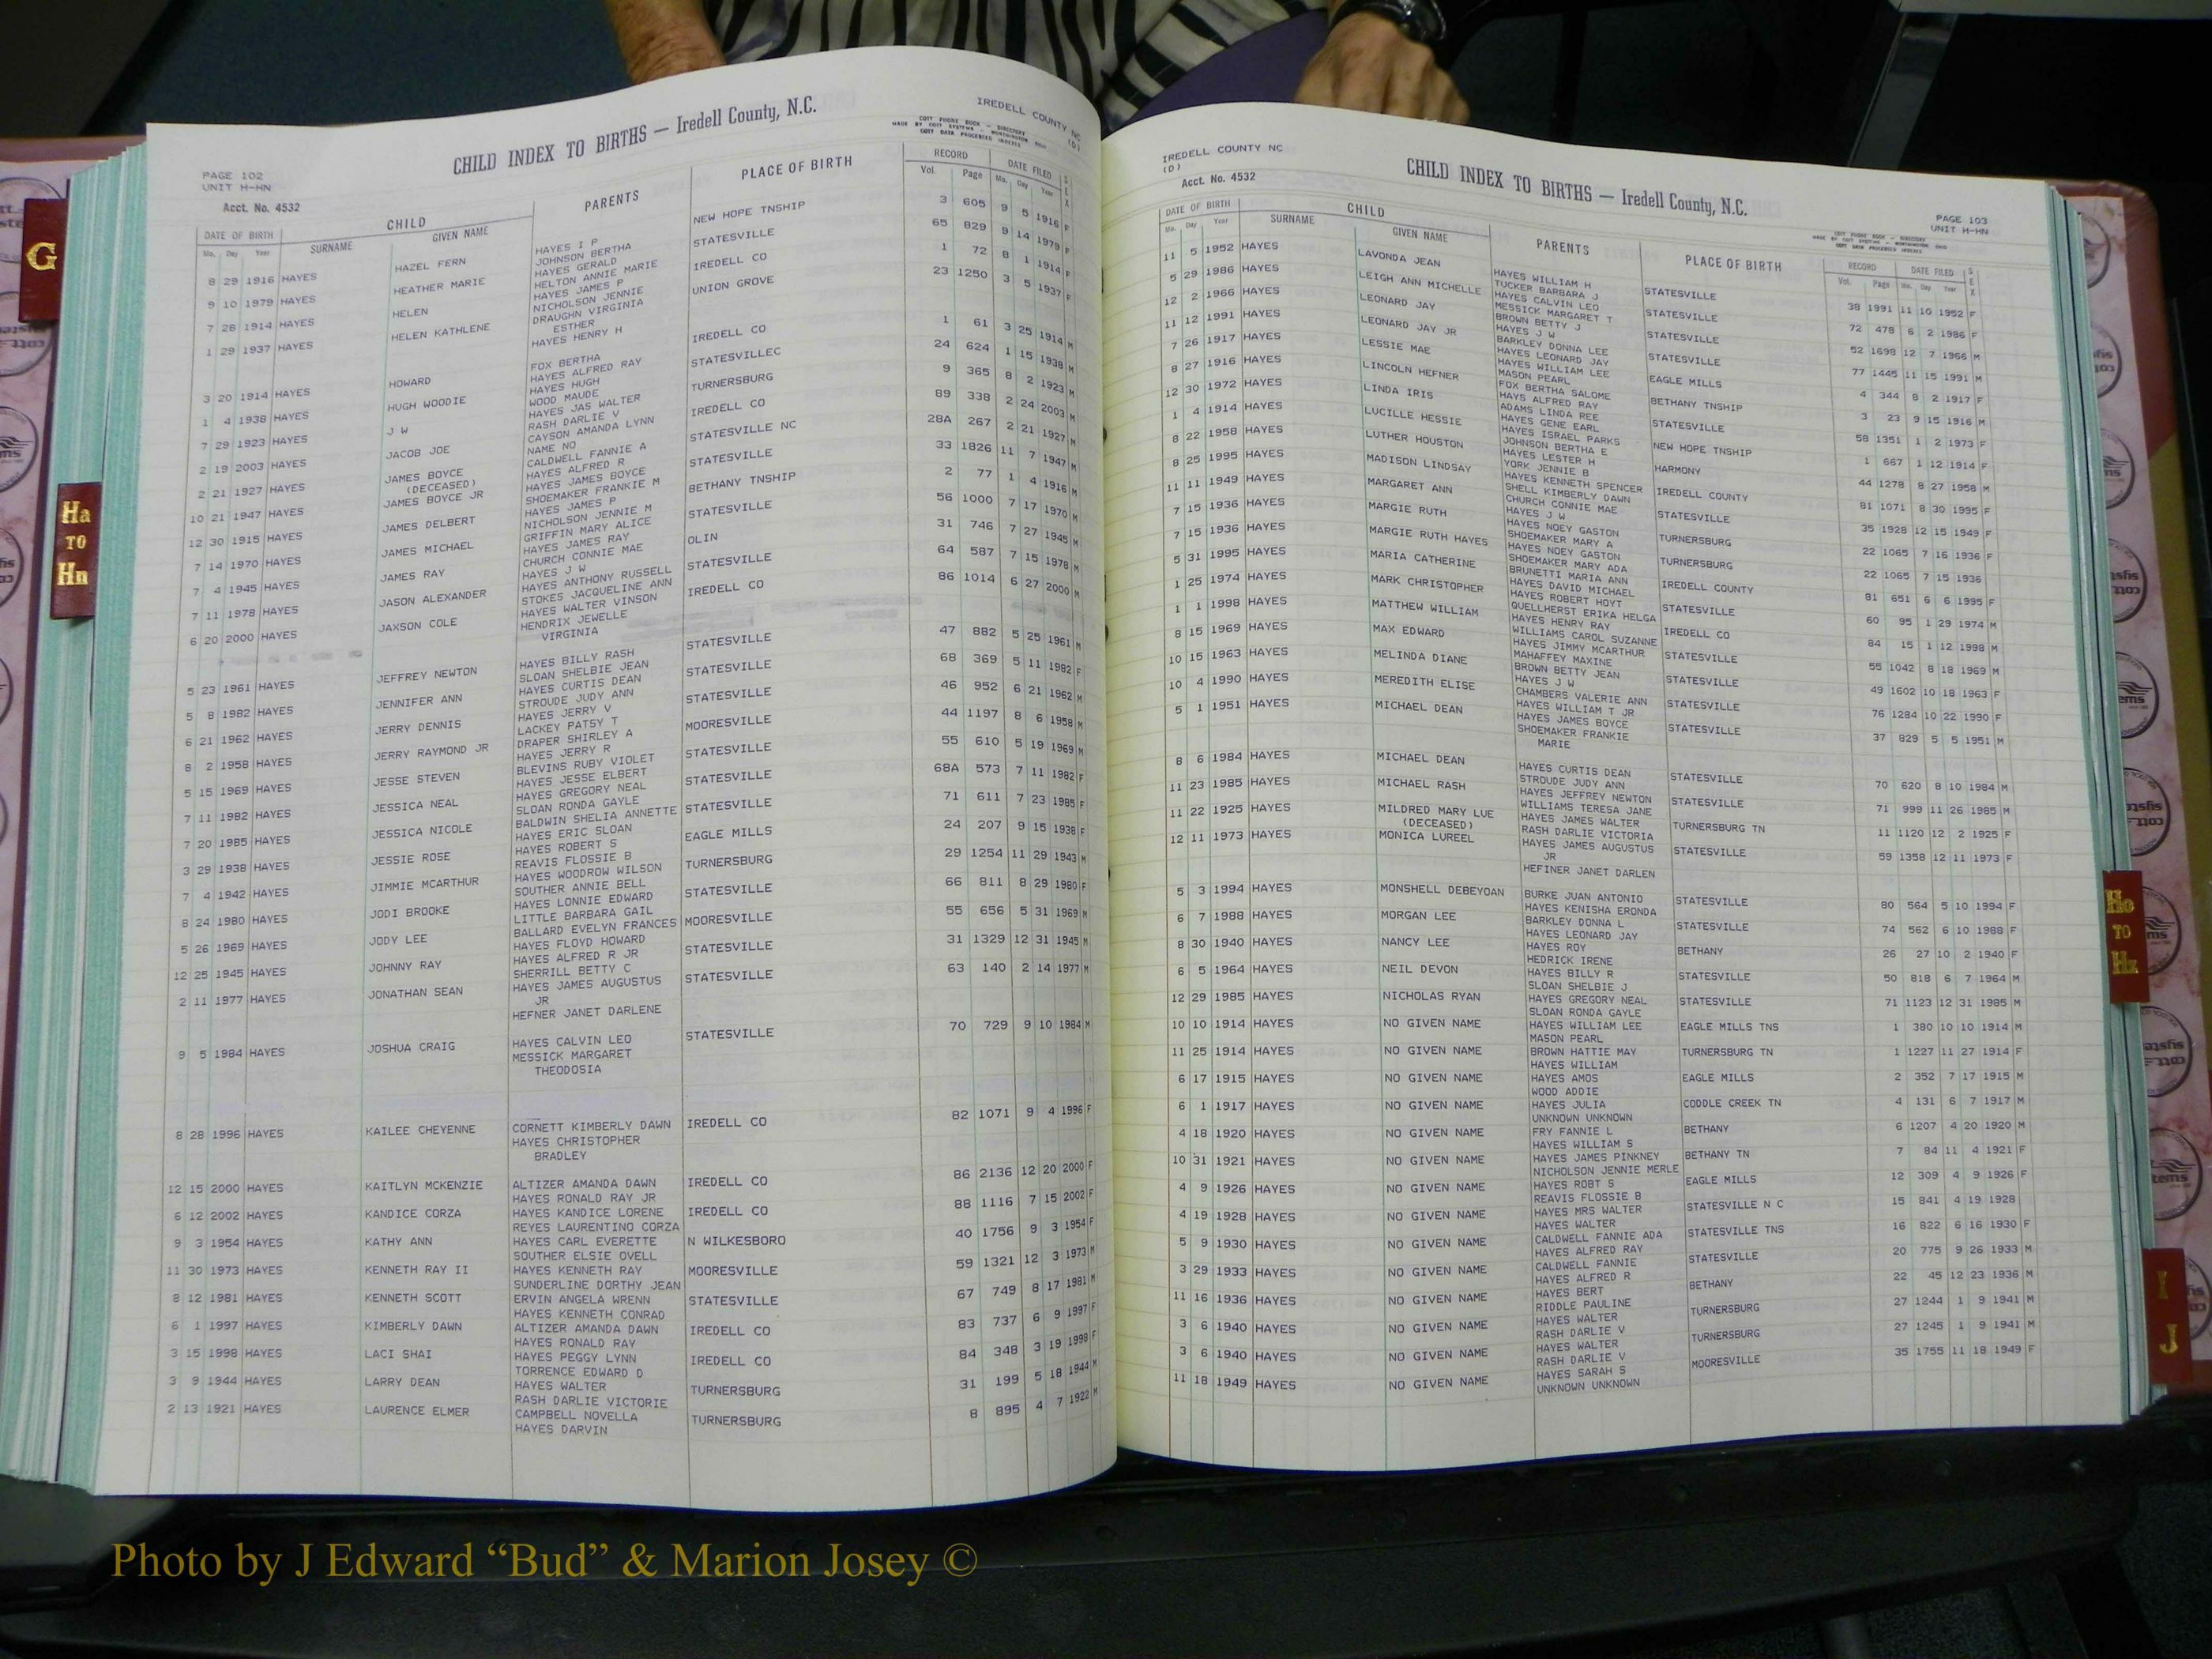 CHILD INDEX TO BIRTHS — Iredell County, N.C.
IREDELL COUNTY NC
(D)
COTT PHONE BOOK - DIRECTORY
MADE BY COTT SYSTEMS - WORTHINGTON OHIO
COTT DATA PROCESSED INDEXES
PAGE 102
UNIT H-HN
Acct. No. 4532
DATE OF BIRTH CHILD PARENTS PLACE OF BIRTH RECORD DATE FILED SEX
Mo. Day Year SURNAME GIVEN NAME Vol. Page Mo. Day Year
8 29 1916 HAYES HAZEL FERN HAYES I P NEW HOPE TNSHIP 3 605 9 5 1916 F
JOHNSON BERTHA
9 10 1979 HAYES HEATHER MARIE HAYES GERALD STATESVILLE 65 829 9 14 1979 F
HELTON ANNIE MARIE
7 28 1914 HAYES HELEN HAYES JAMES P IREDELL CO 1 72 8 1 1914 F
NICHOLSON JENNIE
1 29 1937 HAYES HELEN KATHLENE DRAUGHN VIRGINIA UNION GROVE 23 1250 3 5 1937 F
ESTHER
HAYES HENRY H
3 20 1914 HAYES HOWARD FOX BERTHA IREDELL CO 1 61 3 25 1914 M
HAYES ALFRED RAY
1 4 1938 HAYES HUGH WOODIE HAYES HUGH STATESVILLEC 24 624 1 15 1938 M
WOOD MAUDE
7 29 1923 HAYES J W HAYES JAS WALTER TURNERSBURG 9 365 8 2 1923 M
RASH DARLIE V
2 19 2003 HAYES JACOB JOE CAYSON AMANDA LYNN IREDELL CO 89 338 2 24 2003 M
NAME NO
2 21 1927 HAYES JAMES BOYCE CALDWELL FANNIE A STATESVILLE NC 28A 267 2 21 1927 M
(DECEASED) HAYES ALFRED R
10 21 1947 HAYES JAMES BOYCE JR HAYES JAMES BOYCE STATESVILLE 33 1826 11 7 1947 M
SHOEMAKER FRANKIE M
12 30 1915 HAYES JAMES DELBERT HAYES JAMES P BETHANY TNSHIP 2 77 1 4 1916 M
NICHOLSON JENNIE M
7 14 1970 HAYES JAMES MICHAEL GRIFFIN MARY ALICE STATESVILLE 56 1000 7 17 1970 M
HAYES JAMES RAY
7 4 1945 HAYES JAMES RAY CHURCH CONNIE MAE OLIN 31 746 7 27 1945 M
HAYES J W
7 11 1978 HAYES JASON ALEXANDER HAYES ANTHONY RUSSELL STATESVILLE 64 587 7 15 1978 M
STOKES JACQUELINE ANN
6 20 2000 HAYES JAXSON COLE HAYES WALTER VINSON IREDELL CO 86 1014 6 27 2000 M
HENDRIX JEWELLE
VIRGINIA
5 23 1961 HAYES JEFFREY NEWTON HAYES BILLY RASH STATESVILLE 47 882 5 25 1961 M
SLOAN SHELBIE JEAN
5 8 1982 HAYES JENNIFER ANN HAYES CURTIS DEAN STATESVILLE 68 369 5 11 1982 F
STROUDE JUDY ANN
6 21 1962 HAYES JERRY DENNIS HAYES JERRY V STATESVILLE 46 952 6 21 1962 M
LACKEY PATSY T
8 2 1958 HAYES JERRY RAYMOND JR DRAPER SHIRLEY A MOORESVILLE 44 1197 8 6 1958 M
HAYES JERRY R
5 15 1969 HAYES JESSE STEVEN BLEVINS RUBY VIOLET STATESVILLE 55 610 5 19 1969 M
HAYES JESSE ELBERT
7 11 1982 HAYES JESSICA NEAL HAYES GREGORY NEAL STATESVILLE 68A 573 7 11 1982 F
SLOAN RONDA GAYLE
7 20 1985 HAYES JESSICA NICOLE BALDWIN SHELIA ANNETTE STATESVILLE 71 611 7 23 1985 F
HAYES ERIC SLOAN
3 29 1938 HAYES JESSIE ROSE HAYES ROBERT S EAGLE MILLS 24 207 9 15 1938 F
REAVIS FLOSSIE B
7 4 1942 HAYES JIMMIE MCARTHUR HAYES WOODROW WILSON TURNERSBURG 29 1254 11 29 1943 M
SOUTHER ANNIE BELL
8 24 1980 HAYES JODI BROOKE HAYES LONNIE EDWARD STATESVILLE 66 811 8 29 1980 F
LITTLE BARBARA GAIL
5 26 1969 HAYES JODY LEE BALLARD EVELYN FRANCES MOORESVILLE 55 656 5 31 1969 M
HAYES FLOYD HOWARD
12 25 1945 HAYES JOHNNY RAY HAYES ALFRED R JR STATESVILLE 31 1329 12 31 1945 M
SHERRILL BETTY C
2 11 1977 HAYES JONATHAN SEAN HAYES JAMES AUGUSTUS STATESVILLE 63 140 2 14 1977 M
JR
HEFNER JANET DARLENE
9 5 1984 HAYES JOSHUA CRAIG HAYES CALVIN LEO STATESVILLE 70 729 9 10 1984 M
MESSICK MARGARET
THEODOSIA
8 28 1996 HAYES KAILEE CHEYENNE CORNETT KIMBERLY DAWN IREDELL CO 82 1071 9 4 1996 F
HAYES CHRISTOPHER
BRADLEY
12 15 2000 HAYES KAITLYN MCKENZIE ALTIZER AMANDA DAWN IREDELL CO 86 2136 12 20 2000 F
HAYES RONALD RAY JR
6 12 2002 HAYES KANDICE CORZA HAYES KANDICE LORENE IREDELL CO 88 1116 7 15 2002 F
REYES LAURENTINO CORZA
9 3 1954 HAYES KATHY ANN HAYES CARL EVERETTE N WILKESBORO 40 1756 9 3 1954 F
SOUTHER ELSIE OVELL
11 30 1973 HAYES KENNETH RAY II HAYES KENNETH RAY MOORESVILLE 59 1321 12 3 1973 M
SUNDERLINE DORTHY JEAN
8 12 1981 HAYES KENNETH SCOTT ERVIN ANGELA WRENN STATESVILLE 67 749 8 17 1981 M
HAYES KENNETH CONRAD
6 1 1997 HAYES KIMBERLY DAWN ALTIZER AMANDA DAWN IREDELL CO 83 737 6 9 1997 F
HAYES RONALD RAY
3 15 1998 HAYES LACI SHAI HAYES PEGGY LYNN IREDELL CO 84 348 3 19 1998 F
TORRENCE EDWARD D
3 9 1944 HAYES LARRY DEAN HAYES WALTER TURNERSBURG 31 199 5 18 1944 M
RASH DARLIE VICTORIE
2 13 1921 HAYES LAURENCE ELMER CAMPBELL NOVELLA TURNERSBURG 8 895 4 7 1922 M
HAYES DARVIN
IREDELL COUNTY NC
(D)
Acct. No. 4532
CHILD INDEX TO BIRTHS — Iredell County, N.C.
PAGE 103
UNIT H-HN
COTT PHONE BOOK - DIRECTORY
MADE BY COTT SYSTEMS - WORTHINGTON OHIO
COTT DATA PROCESSED INDEXES
DATE OF BIRTH CHILD PARENTS PLACE OF BIRTH RECORD DATE FILED SEX
Mo. Day Year SURNAME GIVEN NAME Vol. Page Mo. Day Year
11 5 1952 HAYES LAVONDA JEAN HAYES WILLIAM H STATESVILLE 38 1991 11 10 1952 F
TUCKER BARBARA J
5 29 1986 HAYES LEIGH ANN MICHELLE HAYES CALVIN LEO STATESVILLE 72 478 6 2 1986 F
MESSICK MARGARET T
12 2 1966 HAYES LEONARD JAY BROWN BETTY J STATESVILLE 52 1698 12 7 1966 M
HAYES J W
11 12 1991 HAYES LEONARD JAY JR BARKLEY DONNA LEE EAGLE MILLS 77 1445 11 15 1991 M
HAYES LEONARD JAY
7 26 1917 HAYES LESSIE MAE HAYES WILLIAM LEE BETHANY TNSHIP 4 344 8 2 1917 F
MASON PEARL
8 27 1916 HAYES LINCOLN HEFNER FOX BERTHA SALOME STATESVILLE 3 23 9 15 1916 M
HAYS ALFRED RAY
12 30 1972 HAYES LINDA IRIS ADAMS LINDA REE NEW HOPE TNSHIP 58 1351 1 2 1973 F
HAYES GENE EARL
1 4 1914 HAYES LUCILLE HESSIE HAYES ISRAEL PARKS HARMONY 1 667 1 12 1914 F
JOHNSON BERTHA E
8 22 1958 HAYES LUTHER HOUSTON HAYES LESTER H IREDELL COUNTY 44 1278 8 27 1958 M
YORK JENNIE B
8 25 1995 HAYES MADISON LINDSAY HAYES KENNETH SPENCER STATESVILLE 81 1071 8 30 1995 F
SHELL KIMBERLY DAWN
11 11 1949 HAYES MARGARET ANN CHURCH CONNIE MAE TURNERSBURG 35 1928 12 15 1949 F
HAYES J W
7 15 1936 HAYES MARGIE RUTH HAYES NOEY GASTON TURNERSBURG 22 1065 7 16 1936 F
SHOEMAKER MARY A
7 15 1936 HAYES MARGIE RUTH HAYES HAYES NOEY GASTON IREDELL COUNTY 22 1065 7 15 1936
SHOEMAKER MARY ADA
5 31 1995 HAYES MARIA CATHERINE BRUNETTI MARIA ANN STATESVILLE 81 651 6 6 1995 F
HAYES DAVID MICHAEL
1 25 1974 HAYES MARK CHRISTOPHER HAYES ROBERT HOYT IREDELL CO 60 95 1 29 1974 M
QUELLHERST ERIKA HELGA
1 1 1998 HAYES MATTHEW WILLIAM HAYES HENRY RAY STATESVILLE 84 15 1 12 1998 M
WILLIAMS CAROL SUZANNE
8 15 1969 HAYES MAX EDWARD HAYES JIMMY MCARTHUR STATESVILLE 55 1042 8 18 1969 M
MAHAFFEY MAXINE
10 15 1963 HAYES MELINDA DIANE BROWN BETTY JEAN STATESVILLE 49 1602 10 18 1963 F
HAYES J W
10 4 1990 HAYES MEREDITH ELISE CHAMBERS VALERIE ANN STATESVILLE 76 1284 10 22 1990 F
HAYES WILLIAM T JR
5 1 1951 HAYES MICHAEL DEAN HAYES JAMES BOYCE 37 829 5 5 1951 M
SHOEMAKER FRANKIE
MARIE
8 6 1984 HAYES MICHAEL DEAN HAYES CURTIS DEAN STATESVILLE 70 620 8 10 1984 M
STROUDE JUDY ANN
11 23 1985 HAYES MICHAEL RASH HAYES JEFFREY NEWTON STATESVILLE 71 999 11 26 1985 M
WILLIAMS TERESA JANE
11 22 1925 HAYES MILDRED MARY LUE HAYES JAMES WALTER TURNERSBURG TN 11 1120 12 2 1925 F
(DECEASED) RASH DARLIE VICTORIA
12 11 1973 HAYES MONICA LUREEL HAYES JAMES AUGUSTUS STATESVILLE 59 1358 12 11 1973 F
JR
HEFINER JANET DARLEN
5 3 1994 HAYES MONSHELL DEBEYOAN BURKE JUAN ANTONIO STATESVILLE 80 564 5 10 1994 F
HAYES KENISHA ERONDA
6 7 1988 HAYES MORGAN LEE BARKLEY DONNA L STATESVILLE 74 562 6 10 1988 F
HAYES LEONARD JAY
8 30 1940 HAYES NANCY LEE HAYES ROY BETHANY 26 27 10 2 1940 F
HEDRICK IRENE
6 5 1964 HAYES NEIL DEVON HAYES BILLY R STATESVILLE 50 818 6 7 1964 M
SLOAN SHELBIE J
12 29 1985 HAYES NICHOLAS RYAN HAYES GREGORY NEAL STATESVILLE 71 1123 12 31 1985 M
SLOAN RONDA GAYLE
10 10 1914 HAYES NO GIVEN NAME HAYES WILLIAM LEE EAGLE MILLS TNS 1 380 10 10 1914 M
MASON PEARL
11 25 1914 HAYES NO GIVEN NAME BROWN HATTIE MAY TURNERSBURG TN 1 1227 11 27 1914 F
HAYES WILLIAM
6 17 1915 HAYES NO GIVEN NAME HAYES AMOS EAGLE MILLS 2 352 7 17 1915 M
WOOD ADDIE
6 1 1917 HAYES NO GIVEN NAME HAYES JULIA CODDLE CREEK TN 4 131 6 7 1917 M
UNKNOWN UNKNOWN
4 18 1920 HAYES NO GIVEN NAME FRY FANNIE L BETHANY 6 1207 4 20 1920 M
HAYES WILLIAM S
10 31 1921 HAYES NO GIVEN NAME HAYES JAMES PINKNEY BETHANY TN 7 84 11 4 1921 F
NICHOLSON JENNIE MERLE
4 9 1926 HAYES NO GIVEN NAME HAYES ROBT S EAGLE MILLS 12 309 4 9 1926 F
REAVIS FLOSSIE B
4 19 1928 HAYES NO GIVEN NAME HAYES MRS WALTER STATESVILLE N C 15 841 4 19 1928
HAYES WALTER
5 9 1930 HAYES NO GIVEN NAME CALDWELL FANNIE ADA STATESVILLE TNS 16 822 6 16 1930 F
HAYES ALFRED RAY
3 29 1933 HAYES NO GIVEN NAME CALDWELL FANNIE STATESVILLE 20 775 9 26 1933 M
HAYES ALFRED R
11 16 1936 HAYES NO GIVEN NAME HAYES BERT BETHANY 22 45 12 23 1936 M
RIDDLE PAULINE
3 6 1940 HAYES NO GIVEN NAME HAYES WALTER TURNERSBURG 27 1244 1 9 1941 M
RASH DARLIE V
3 6 1940 HAYES NO GIVEN NAME HAYES WALTER TURNERSBURG 27 1245 1 9 1941 M
RASH DARLIE V
11 18 1949 HAYES NO GIVEN NAME HAYES SARAH S MOORESVILLE 35 1755 11 18 1949 F
UNKNOWN UNKNOWN
G
Ha
TO
Hn
Ho
TO
Hz
I
J
Photo by J Edward “Bud” & Marion Josey ©